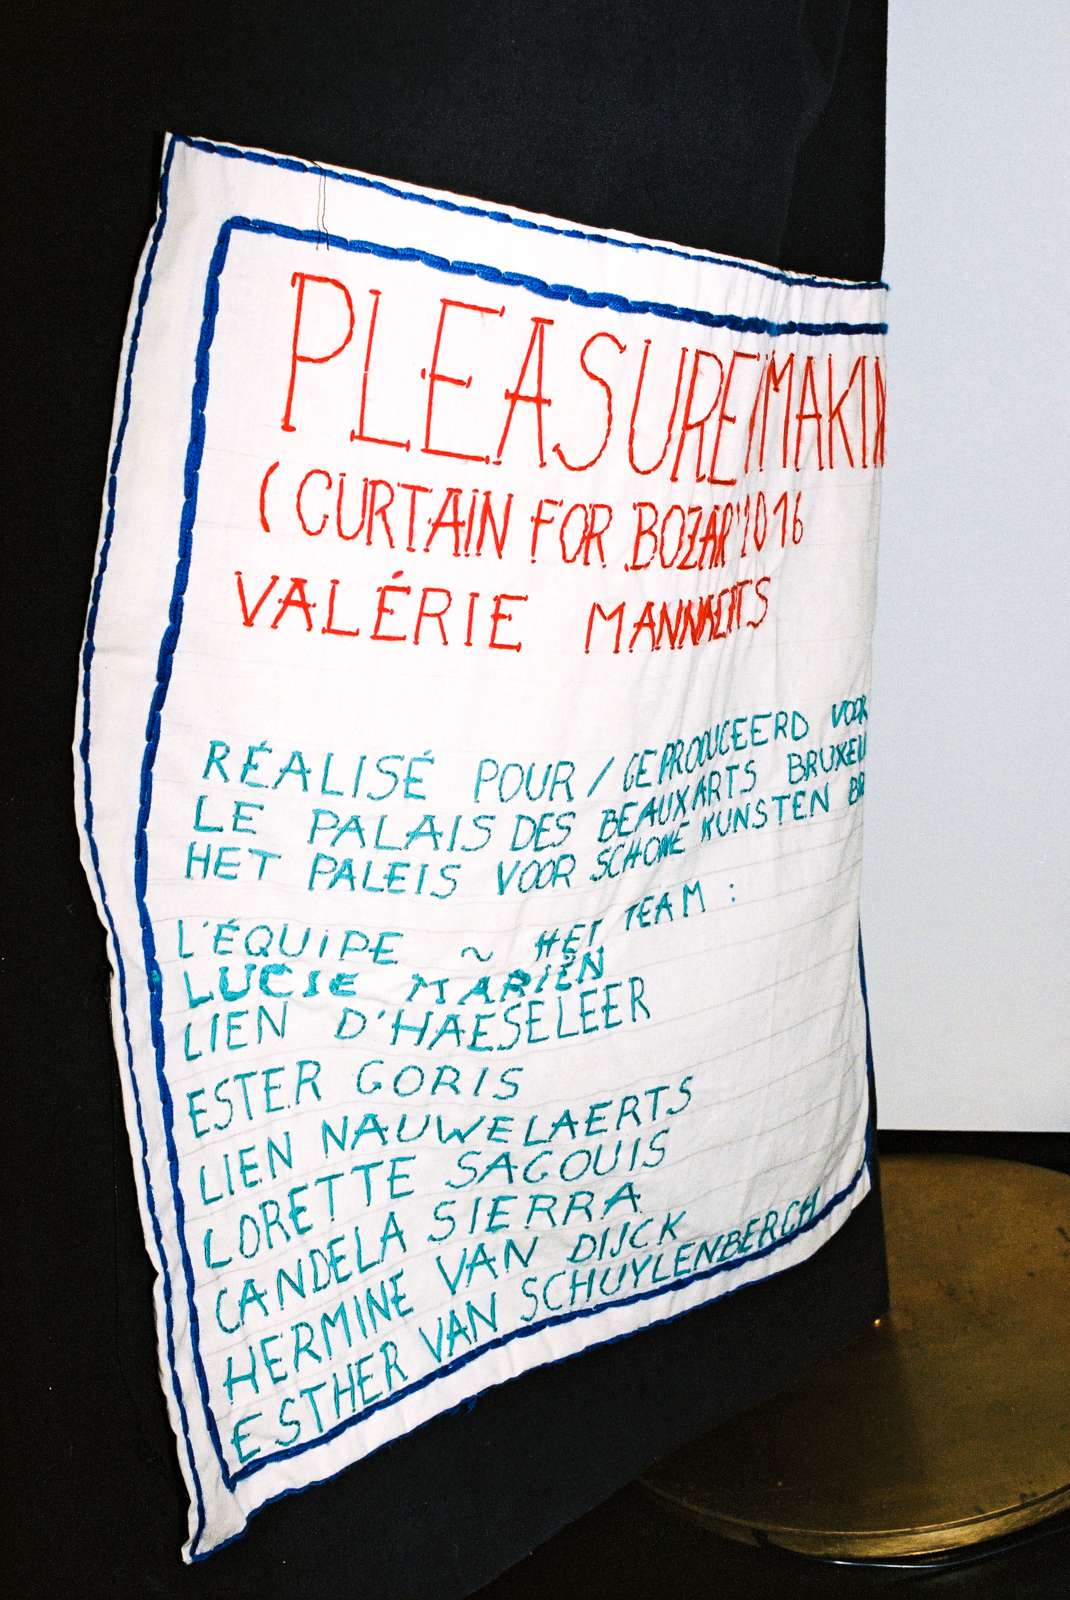 PLEASURE/MAKIN
(CURTAIN FOR BOZAR'2016
VALÉRIE MANNAERTS
RÉALISÉ POUR / GEPRODUCEERD VOOR
LE PALAIS DES BEAUX ARTS BRUXELL
HET PALEIS VOOR SCHONE KUNSTEN BR
L'ÉQUIPE ~ HET TEAM :
LUCIE MARIËN
LIEN D'HAESELEER
ESTER GORIS
LIEN NAUWELAERTS
LORETTE SAGOUIS
CANDELA SIERRA
HERMINE VAN DIJCK
ESTHER VAN SCHUYLENBERGH